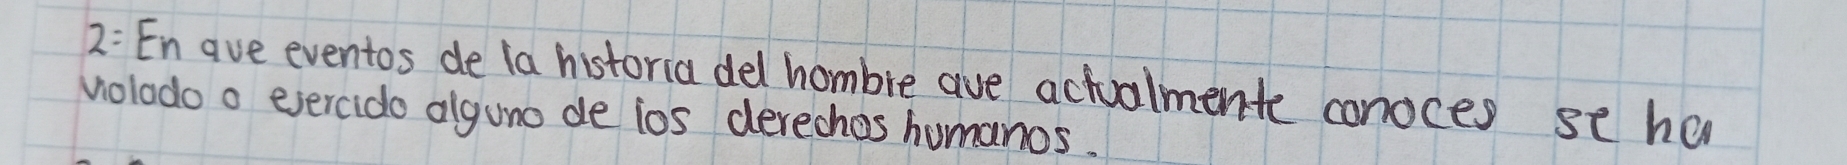 2: En que eventos de la historia del hombre que actualmente conoces se ha
violado o ejercido alguno de los derechos humanos.